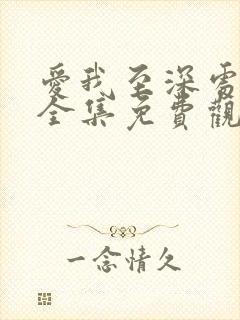 愛我至深電
全集免費觀
一念情久